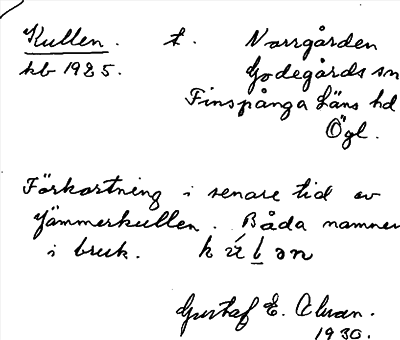 Kullen. t. Norrgården
hb 1925. Godegårds sn
Finspånga läns hd
Ögl.
Förkortning i senare tid av
Jämmerkullen. Båda namnen
i bruk.
Gustaf E. Alvan.
1930.